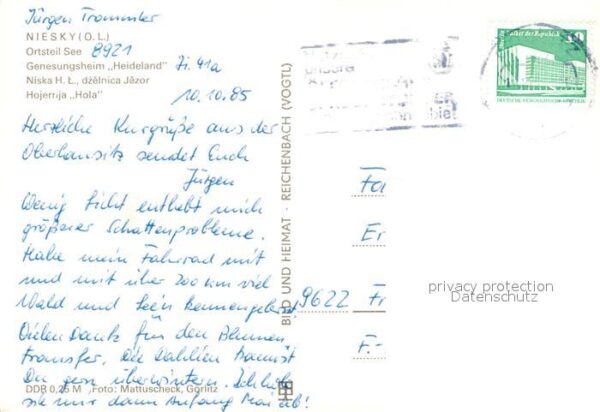 Jürgen Trommler
NIESKY (O. L.)
Ortsteil See 8921
Genesungsheim „Heideland" Zi. 41a
Niska H. Ł., dźělnica Jězor
Hojernja „Hola" 10.10.85
Herzliche Kurgrüße aus der
Oberlausitz sendet Euch
Jürgen
Wenig Licht enthebt mich
größerer Schattenprobleme.
Habe mein Fahrrad mit
und mit über 200 km viel
Wald und Seen kennengelernt
Vielen Dank für den Blumen
transfer. Die Dahlien kannst
Du gern überwintern. Ich hole
sie mir dann Anfang Mai ab!
DDR 0,25 M Foto: Mattuscheck, Görlitz
BILD UND HEIMAT · REICHENBACH (VOGTL)
unsere
10
Palast der Republik
DEUTSCHE DEMOKRATISCHE REPUBLIK
Fa
Er
9622 Fr
F.-
privacy protection
Datenschutz